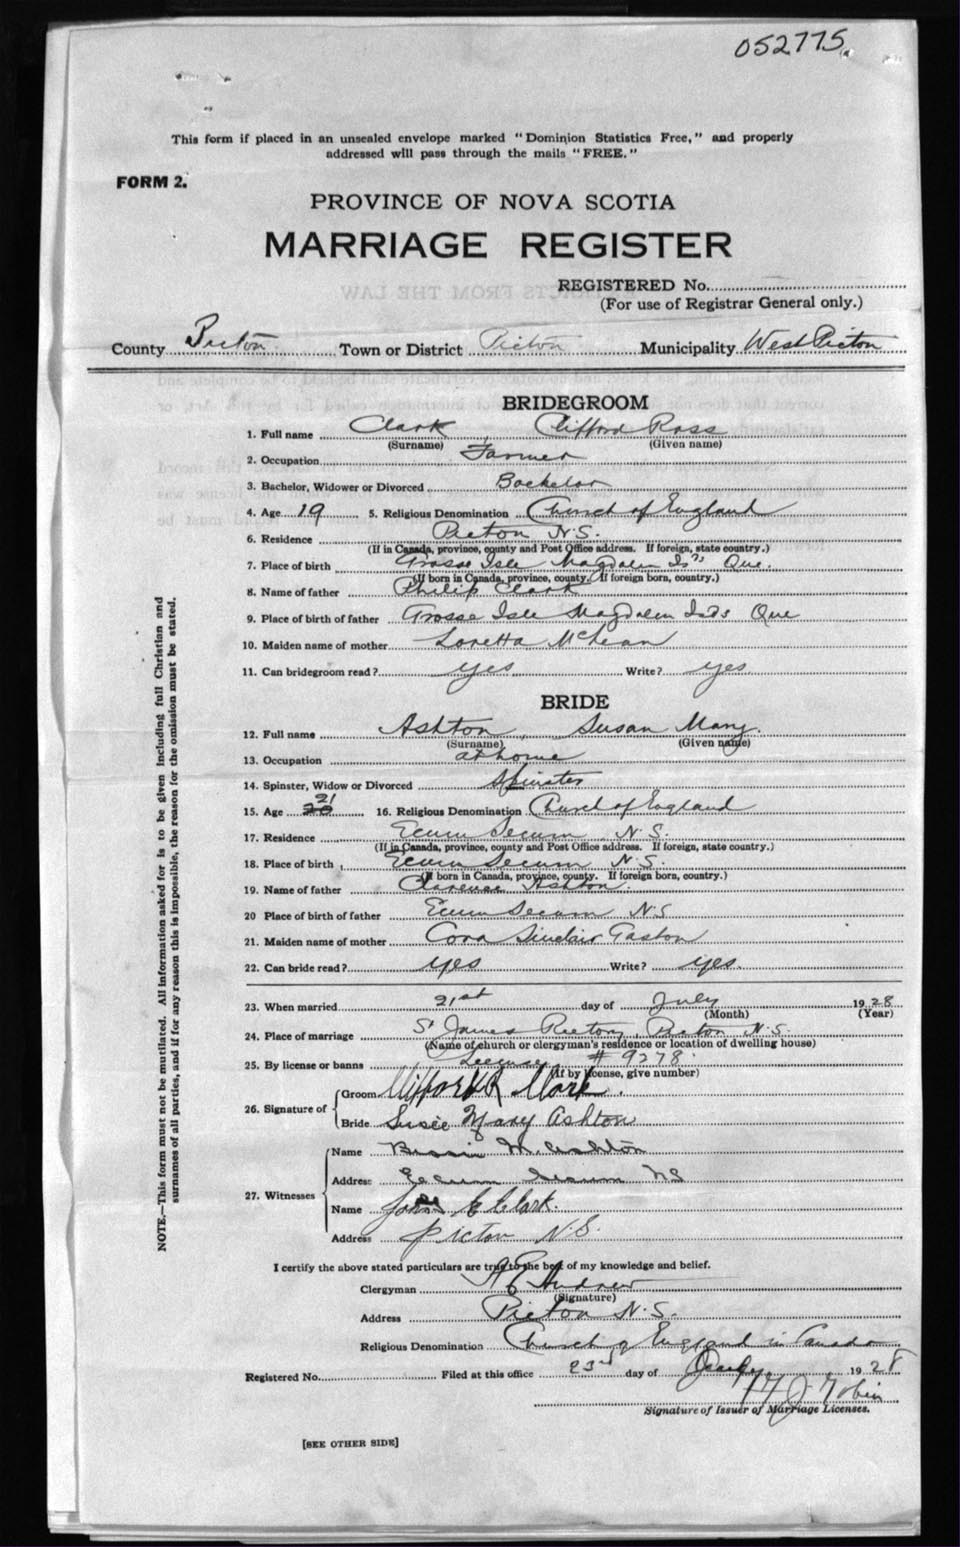 052775
This form if placed in an unsealed envelope marked "Dominion Statistics Free," and properly
addressed will pass through the mails "FREE."
FORM 2.
PROVINCE OF NOVA SCOTIA
MARRIAGE REGISTER
REGISTERED No.
(For use of Registrar General only.)
County Pictou Town or District Pictou Municipality West Pictou
BRIDEGROOM
1. Full name Clark Clifford Ross
(Surname) (Given name)
2. Occupation Farmer
3. Bachelor, Widower or Divorced Bachelor
4. Age 19 5. Religious Denomination Church of England
6. Residence Pictou N.S.
(If in Canada, province, county and Post Office address. If foreign, state country.)
7. Place of birth Grosse Isle Magdalen Isds Que.
(If born in Canada, province, county. If foreign born, country.)
8. Name of father Philip Clark
9. Place of birth of father Grosse Isle Magdalen Isds Que
10. Maiden name of mother Loretta McLean
11. Can bridegroom read? yes Write? yes
BRIDE
12. Full name Ashton, Susan Mary.
(Surname) (Given name)
13. Occupation at home
14. Spinster, Widow or Divorced Spinster
15. Age 20 21 16. Religious Denomination Church of England
17. Residence Ecum Secum N.S.
(If in Canada, province, county and Post Office address. If foreign, state country.)
18. Place of birth Ecum Secum N.S.
(If born in Canada, province, county. If foreign born, country.)
19. Name of father Clarence Ashton.
20 Place of birth of father Ecum Secum N.S
21. Maiden name of mother Cora Sinclair Gaston
22. Can bride read? yes Write? yes.
23. When married 21st day of July 1928
(Month) (Year)
24. Place of marriage St James Rectory, Pictou N.S.
(Name of church or clergyman's residence or location of dwelling house)
25. By license or banns License # 9278.
(If by license, give number)
26. Signature of Groom Clifford R Clark.
Bride Susie Mary Ashton
27. Witnesses Name Bessie M. Ashton
Address Ecum Secum NS
Name John E Clark.
Address Pictou N.S.
I certify the above stated particulars are true to the best of my knowledge and belief.
Clergyman A E Andrew
(Signature)
Address Pictou N.S.
Religious Denomination Church of England in Canada
Registered No. Filed at this office 23rd day of July 1928
Tobin
Signature of Issuer of Marriage Licenses.
[SEE OTHER SIDE]
NOTE.—This form must not be mutilated. All information asked for is to be given including full Christian and
surnames of all parties, and if for any reason this is impossible, the reason for the omission must be stated.